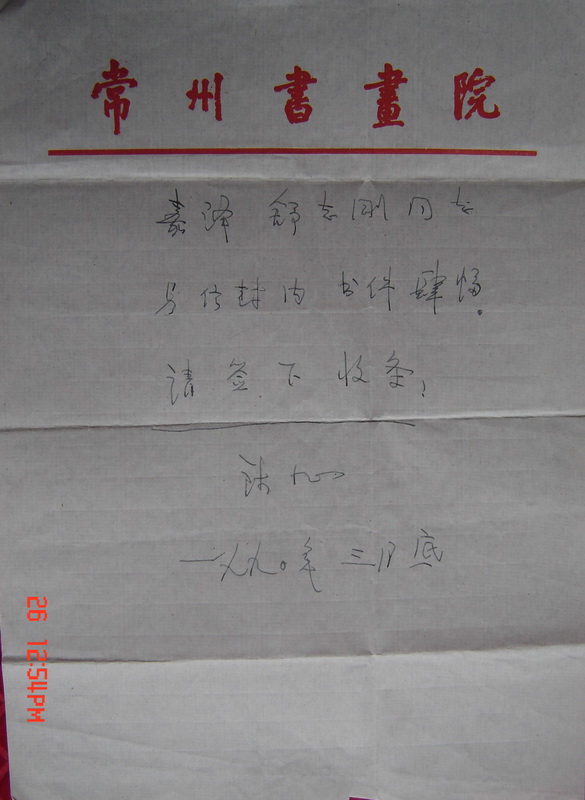 常州書畫院
嘉泽 舒志刚同志
另信封内 书件肆幅。
请签下收条！
一九九〇年 三月底
26 12:54PM